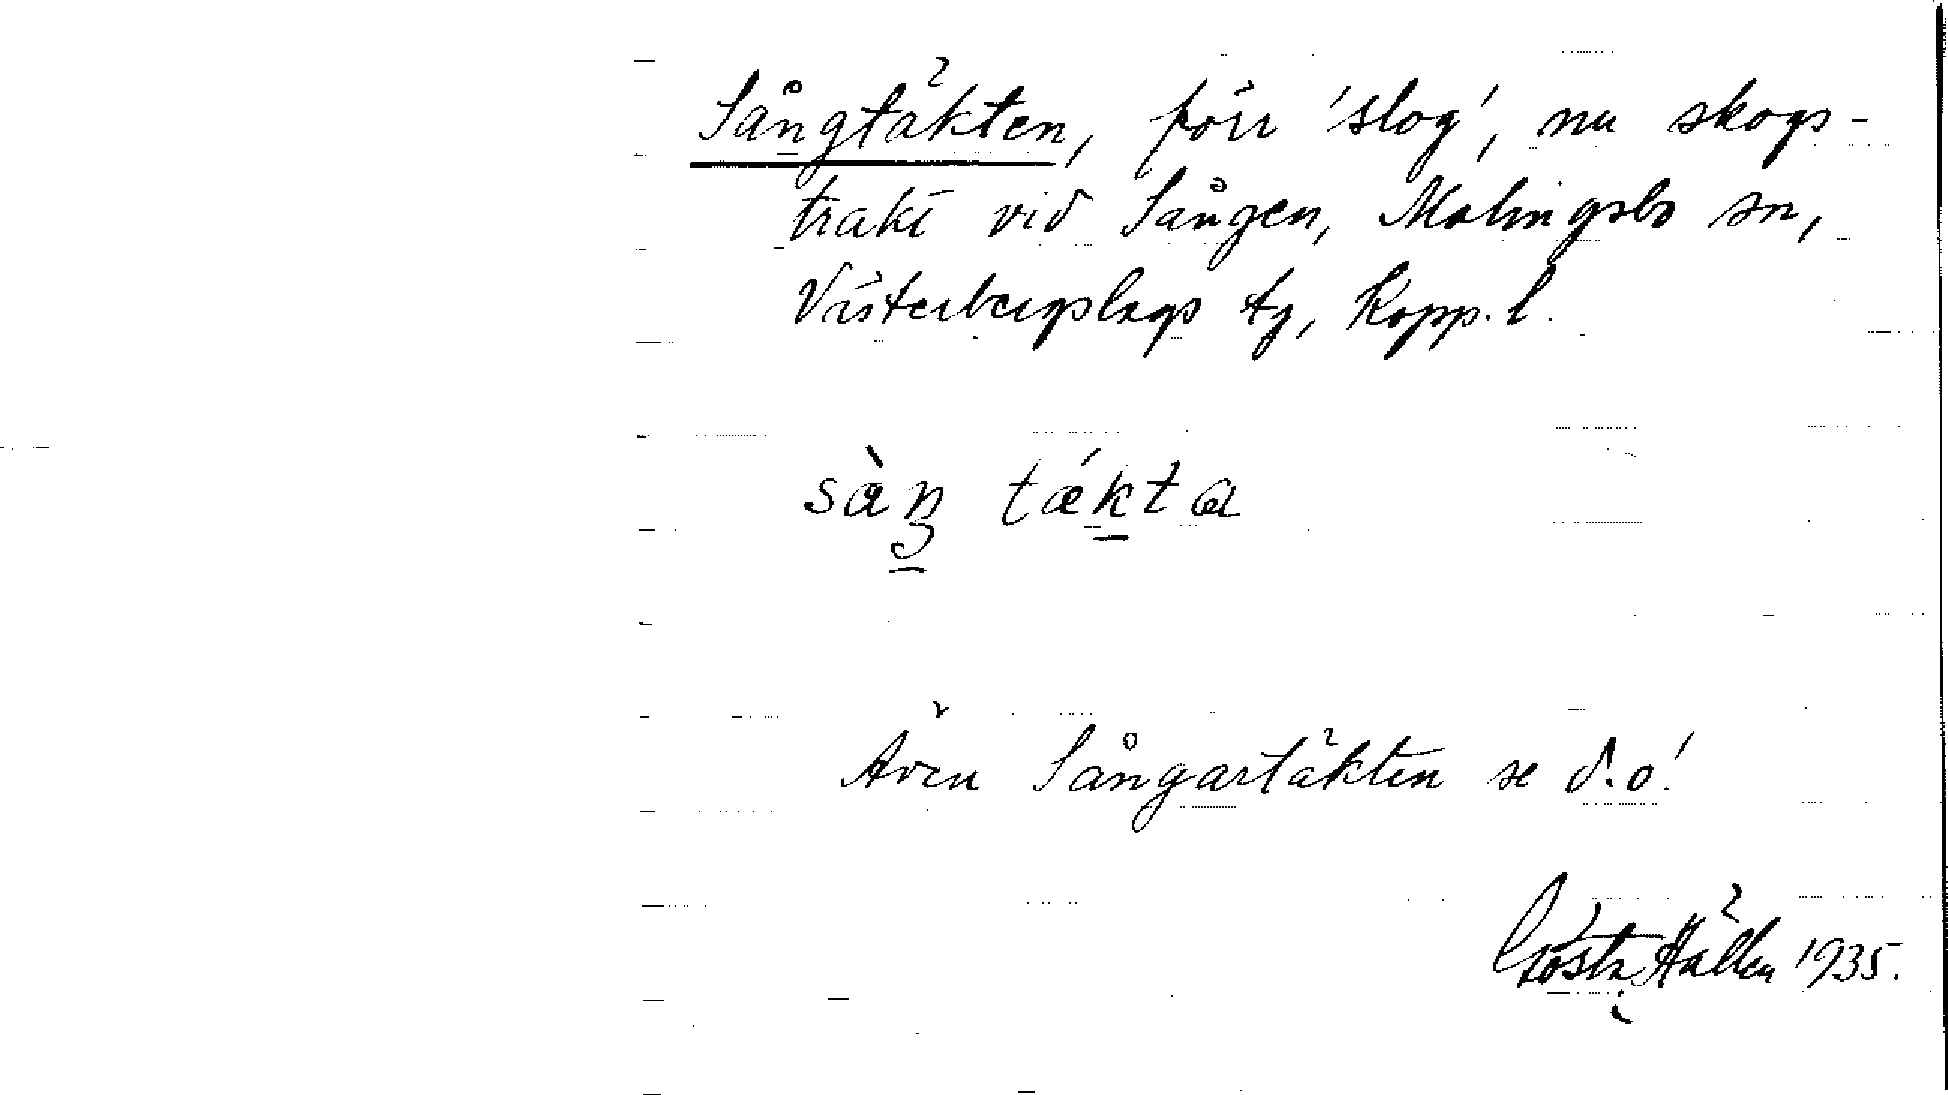 Sångtäkten, förr 'slog', nu skogs-
trakt vid Sången, Malingsbo sn,
Västerbergslags tg, Kopp. l.
sàŋ tǽkta
Även Sångartäkten se d.o!
Gösta Hällen 1935.